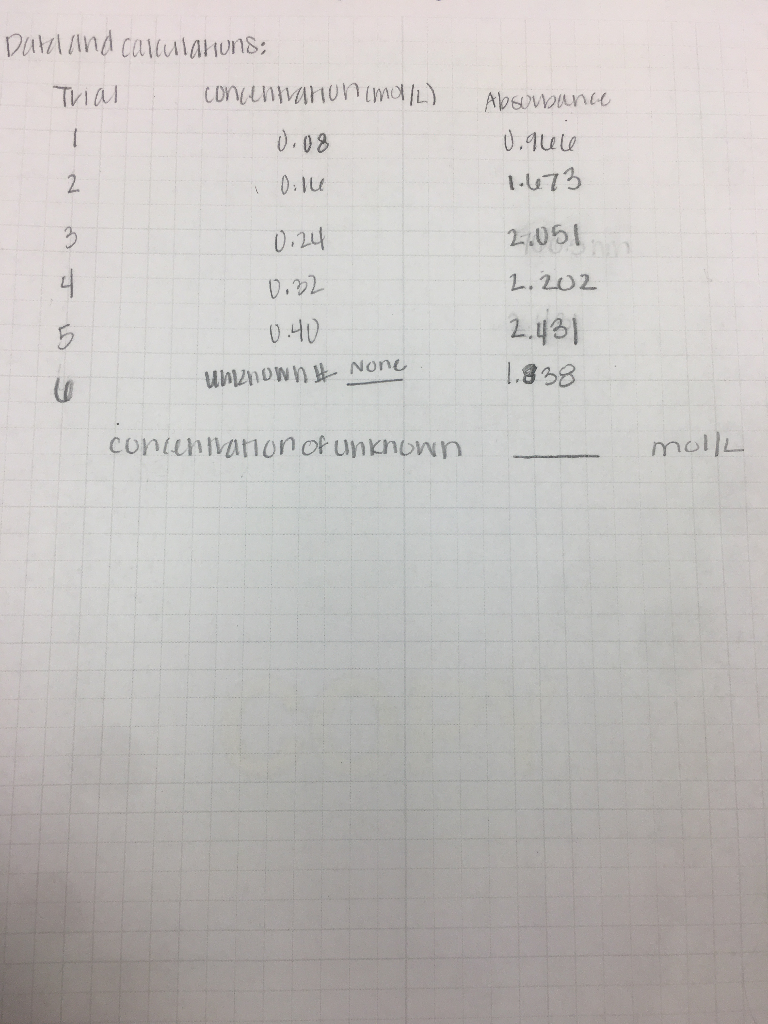 Data and calculations:
Trial concentration (mol/L) Absorbance
1 0.08 0.966
2 0.16 1.673
3 0.24 2.051
4 0.32 2.202
5 0.40 2.431
6 unknown # None 1.838
concentration of unknown ____ mol/L